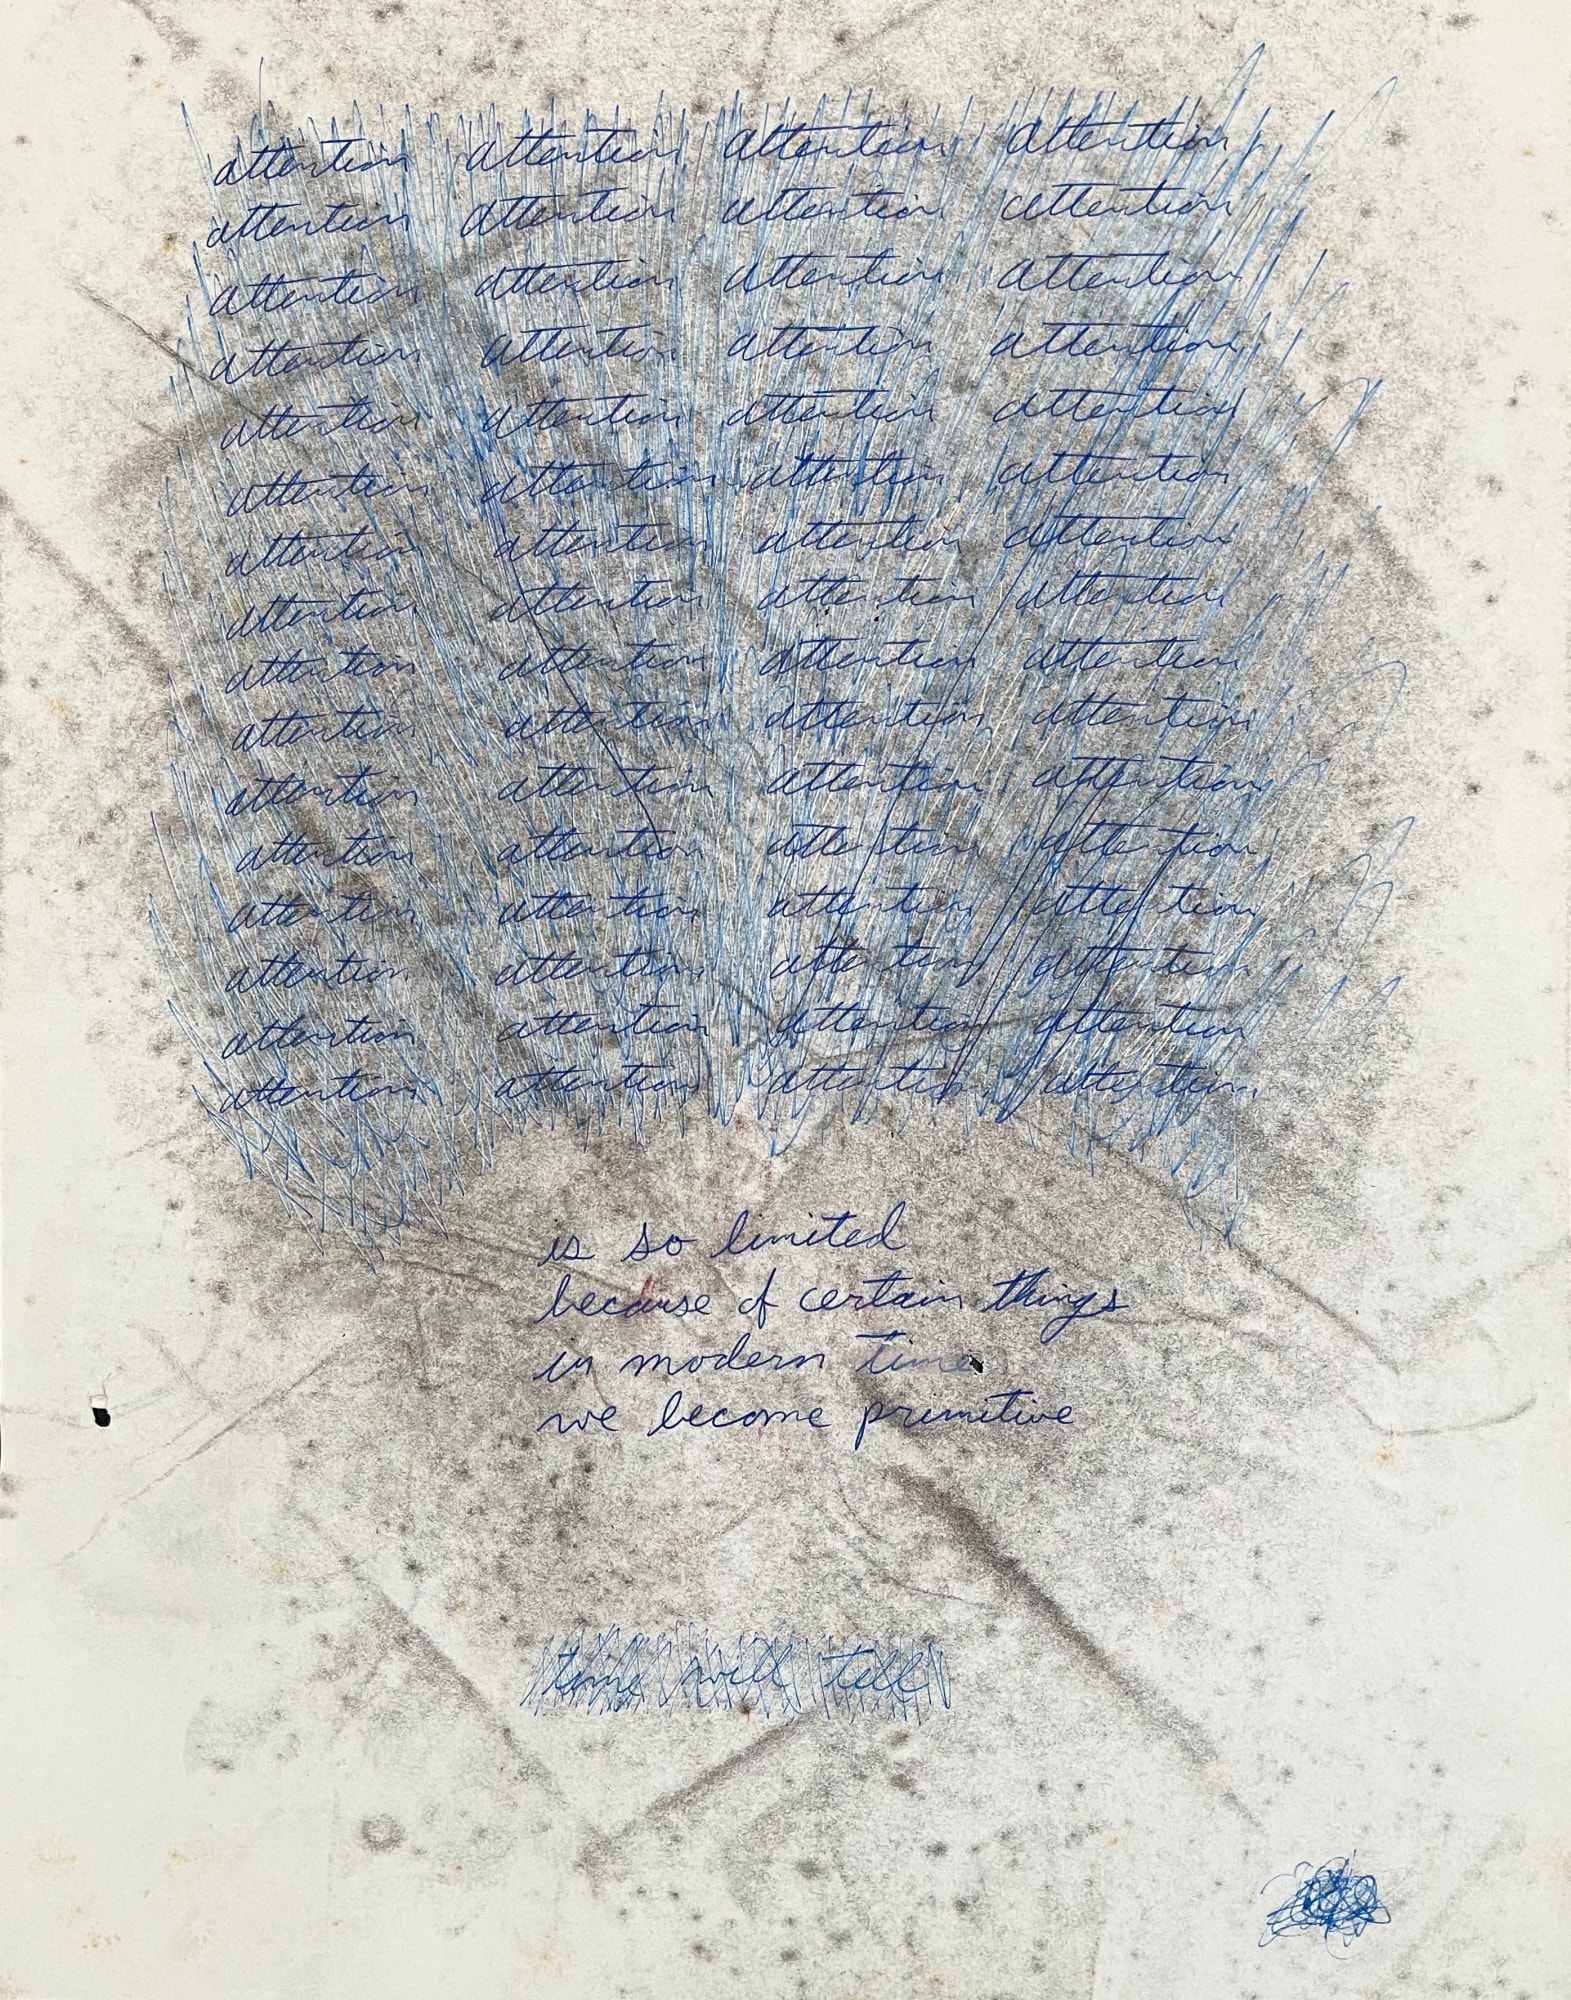 attention attention attention attention
attention attention attention attention
attention attention attention attention
attention attention attention attention
attention attention attention attention
attention attention attention attention
attention attention attention attention
attention attention attention attention
attention attention attention attention
attention attention attention attention
attention attention attention attention
attention attention attention attention
attention attention attention attention
attention attention attention attention
attention attention attention attention
attention attention attention attention
is so limited
because of certain things
in modern time
we become primitive
time will tell